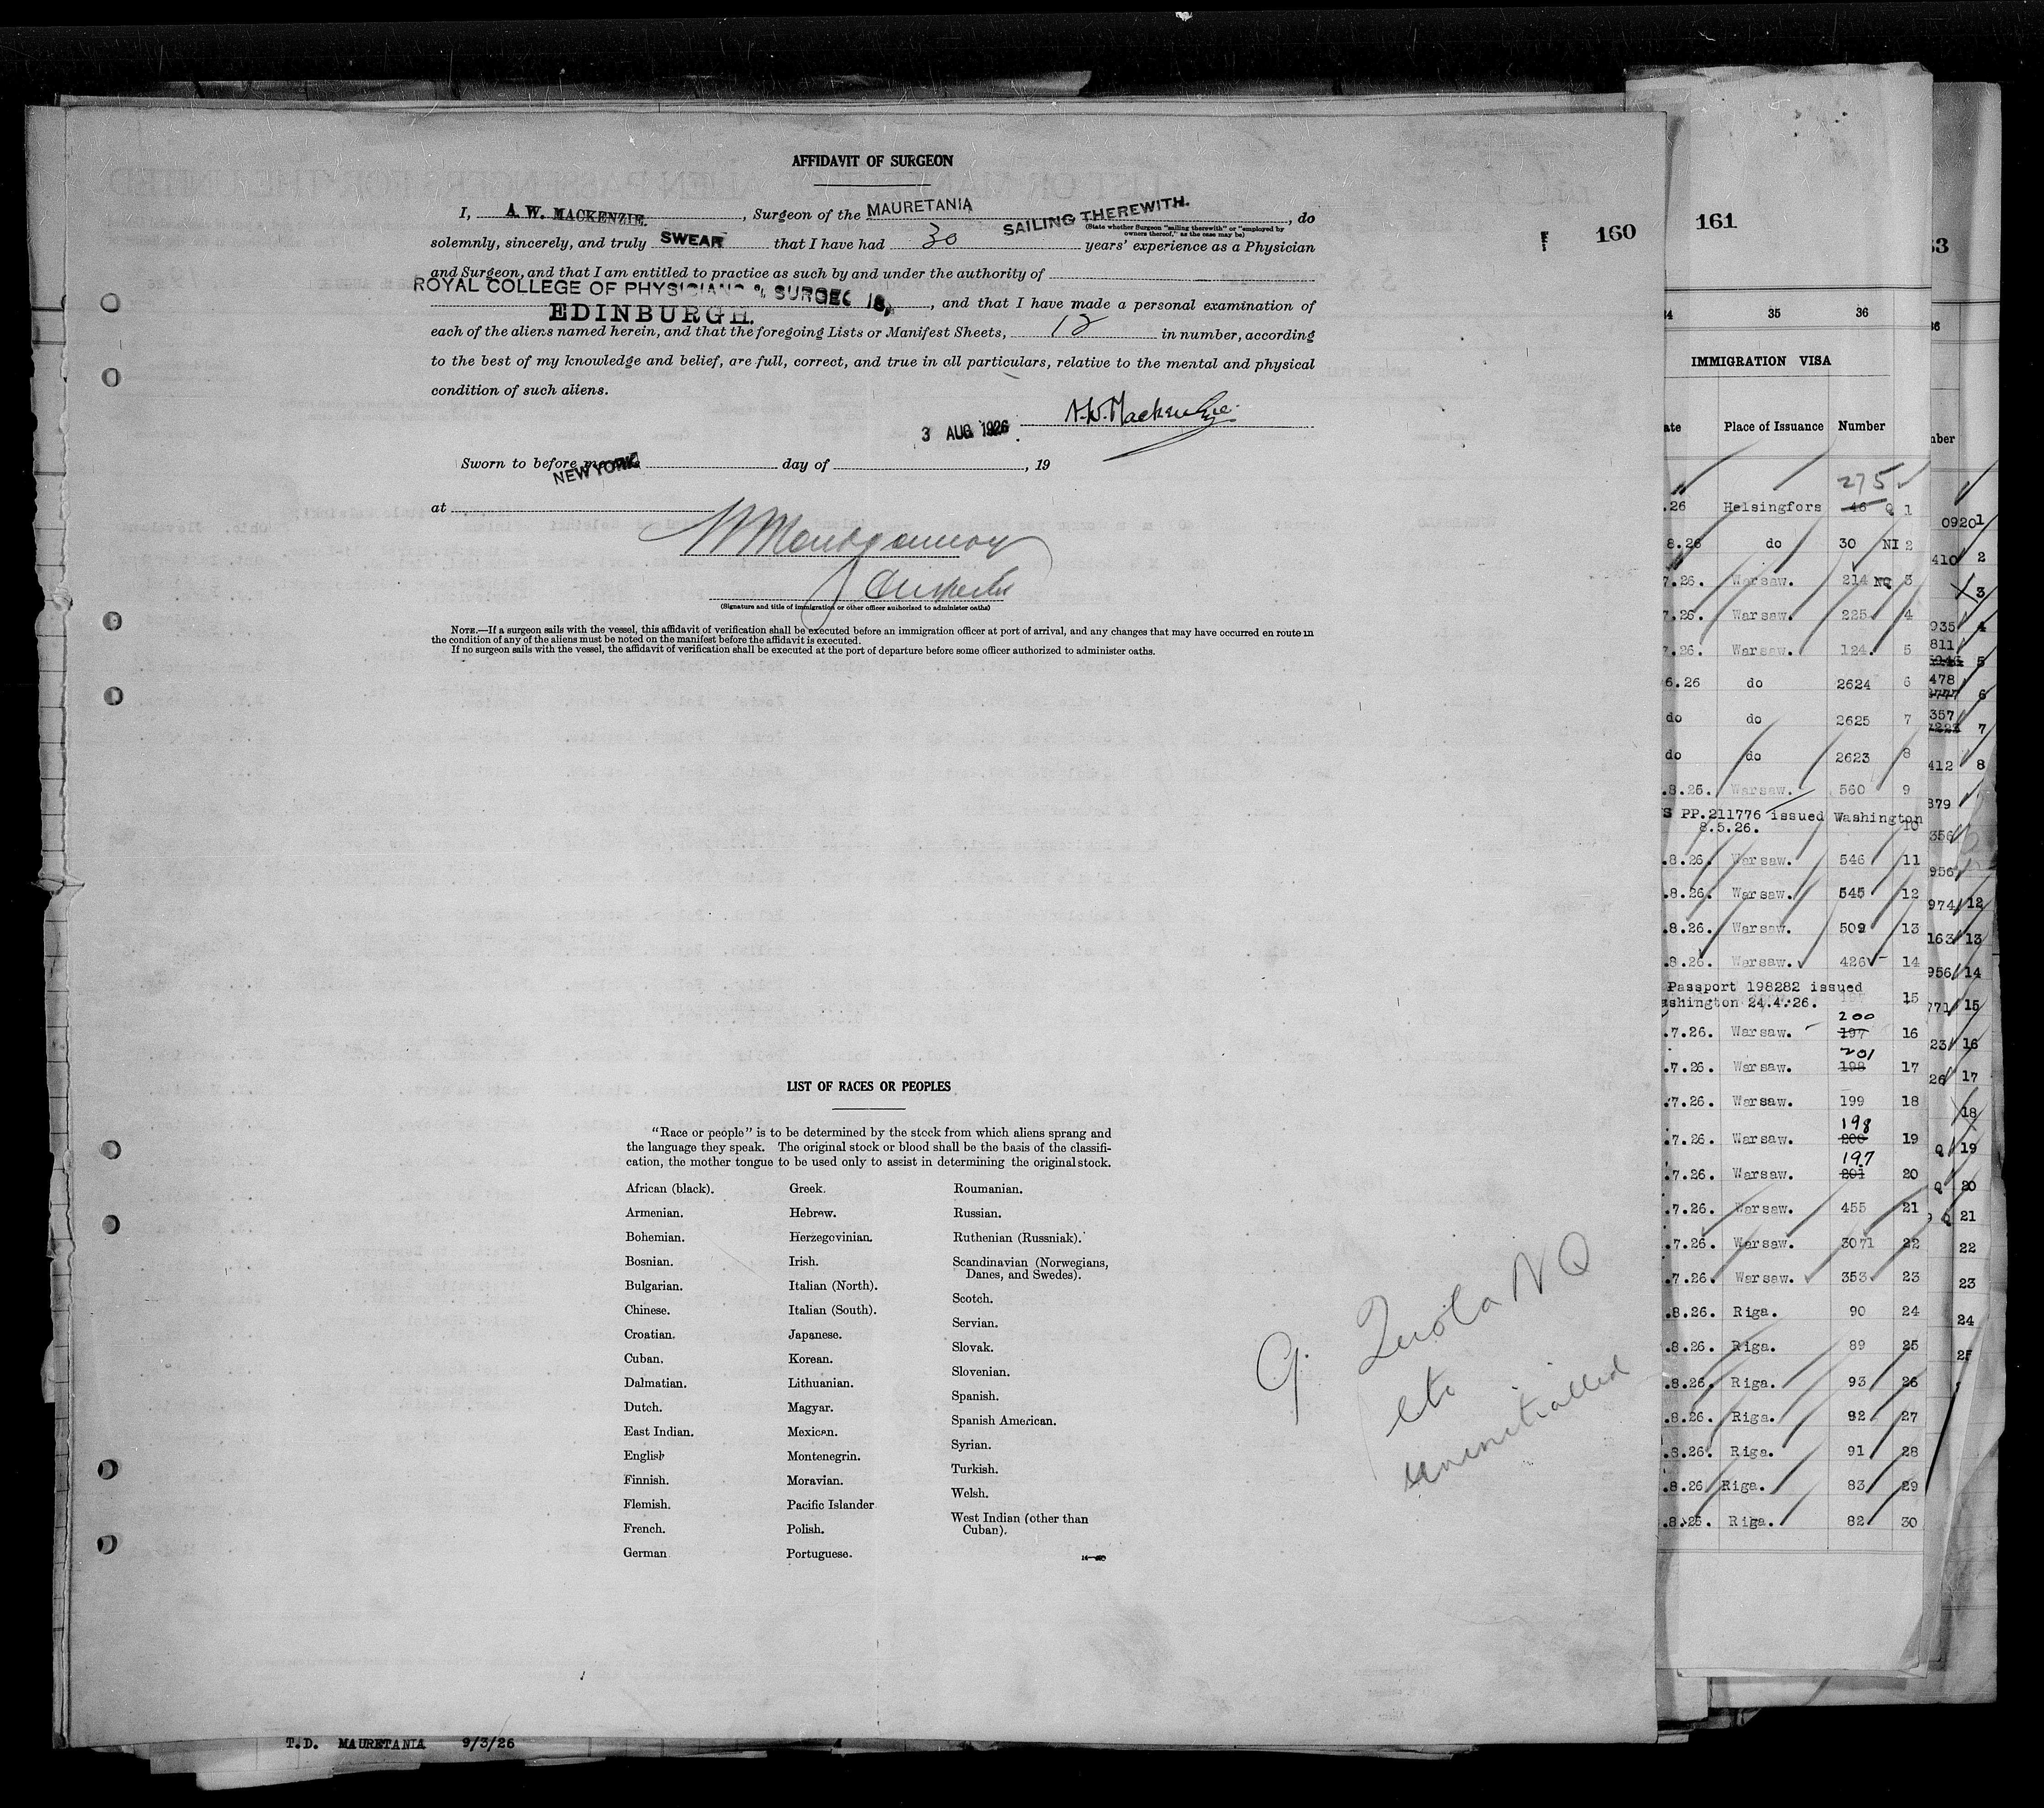 AFFIDAVIT OF SURGEON
I, A. W. MACKENZIE. , Surgeon of the MAURETANIA SAILING THEREWITH. , do
(State whether Surgeon "sailing therewith" or "employed by
owners thereof," as the case may be)
solemnly, sincerely, and truly SWEAR that I have had 30 years' experience as a Physician
and Surgeon, and that I am entitled to practice as such by and under the authority of
ROYAL COLLEGE OF PHYSICIANS & , and that I have made a personal examination of
EDINBURGH.
each of the aliens named herein, and that the foregoing Lists or Manifest Sheets, 12 in number, according
to the best of my knowledge and belief, are full, correct, and true in all particulars, relative to the mental and physical
condition of such aliens.
A.W. Mackenzie
3 AUG 1926
Sworn to before me day of , 19
NEW YORK
at
Montgomery
(Signature and title of immigration or other officer authorized to administer oaths)
NOTE.—If a surgeon sails with the vessel, this affidavit of verification shall be executed before an immigration officer at port of arrival, and any changes that may have occurred en route in
the condition of any of the aliens must be noted on the manifest before the affidavit is executed.
If no surgeon sails with the vessel, the affidavit of verification shall be executed at the port of departure before some officer authorized to administer oaths.
LIST OF RACES OR PEOPLES
"Race or people" is to be determined by the stock from which aliens sprang and
the language they speak. The original stock or blood shall be the basis of the classifi-
cation, the mother tongue to be used only to assist in determining the original stock.
African (black).
Armenian.
Bohemian.
Bosnian.
Bulgarian.
Chinese.
Croatian.
Cuban.
Dalmatian.
Dutch.
East Indian.
English
Finnish.
Flemish.
French.
German
Greek.
Hebrew.
Herzegovinian.
Irish.
Italian (North).
Italian (South).
Japanese.
Korean.
Lithuanian.
Magyar.
Mexican.
Montenegrin.
Moravian.
Pacific Islander
Polish.
Portuguese.
Roumanian.
Russian.
Ruthenian (Russniak).
Scandinavian (Norwegians,
Danes, and Swedes).
Scotch.
Servian.
Slovak.
Slovenian.
Spanish.
Spanish American.
Syrian.
Turkish.
Welsh.
West Indian (other than
Cuban).
Quota NQ
etc
uninitialled
T.D. MAURETANIA 9/3/26
160
161
35 36
IMMIGRATION VISA
Place of Issuance Number
275
.26 Helsingfors 46 Q 1
8.26 do 30 NI 2
7.26. Warsaw. 214 NQ 3
7.26. Warsaw. 225 4
7.26. Warsaw. 124. 5
6.26 do 2624 6
do do 2625 7
do do 2623 8
.8.26. Warsaw. 560 9
PP.211776 issued Washington
8.5.26. 10
.8.26. Warsaw. 546 11
.8.26. Warsaw. 545 12
.8.26. Warsaw. 509 13
.8.26. Warsaw. 426 14
Passport 198282 issued
ashington 24.4.26. 15
200
.7.26. Warsaw. 197 16
201
.7.26. Warsaw. 198 17
.7.26. Warsaw. 199 18
198
.7.26. Warsaw. 200 19
197
.7.26. Warsaw. 201 20
.7.26. Warsaw. 455 21
.7.26. Warsaw. 3071 22
.7.26. Warsaw. 353 23
.8.26. Riga. 90 24
.8.26. Riga. 89 25
.8.26. Riga. 93 26
.8.26. Riga. 92 27
.8.26. Riga. 91 28
.8.26 Riga. 83 29
Riga. 82 30